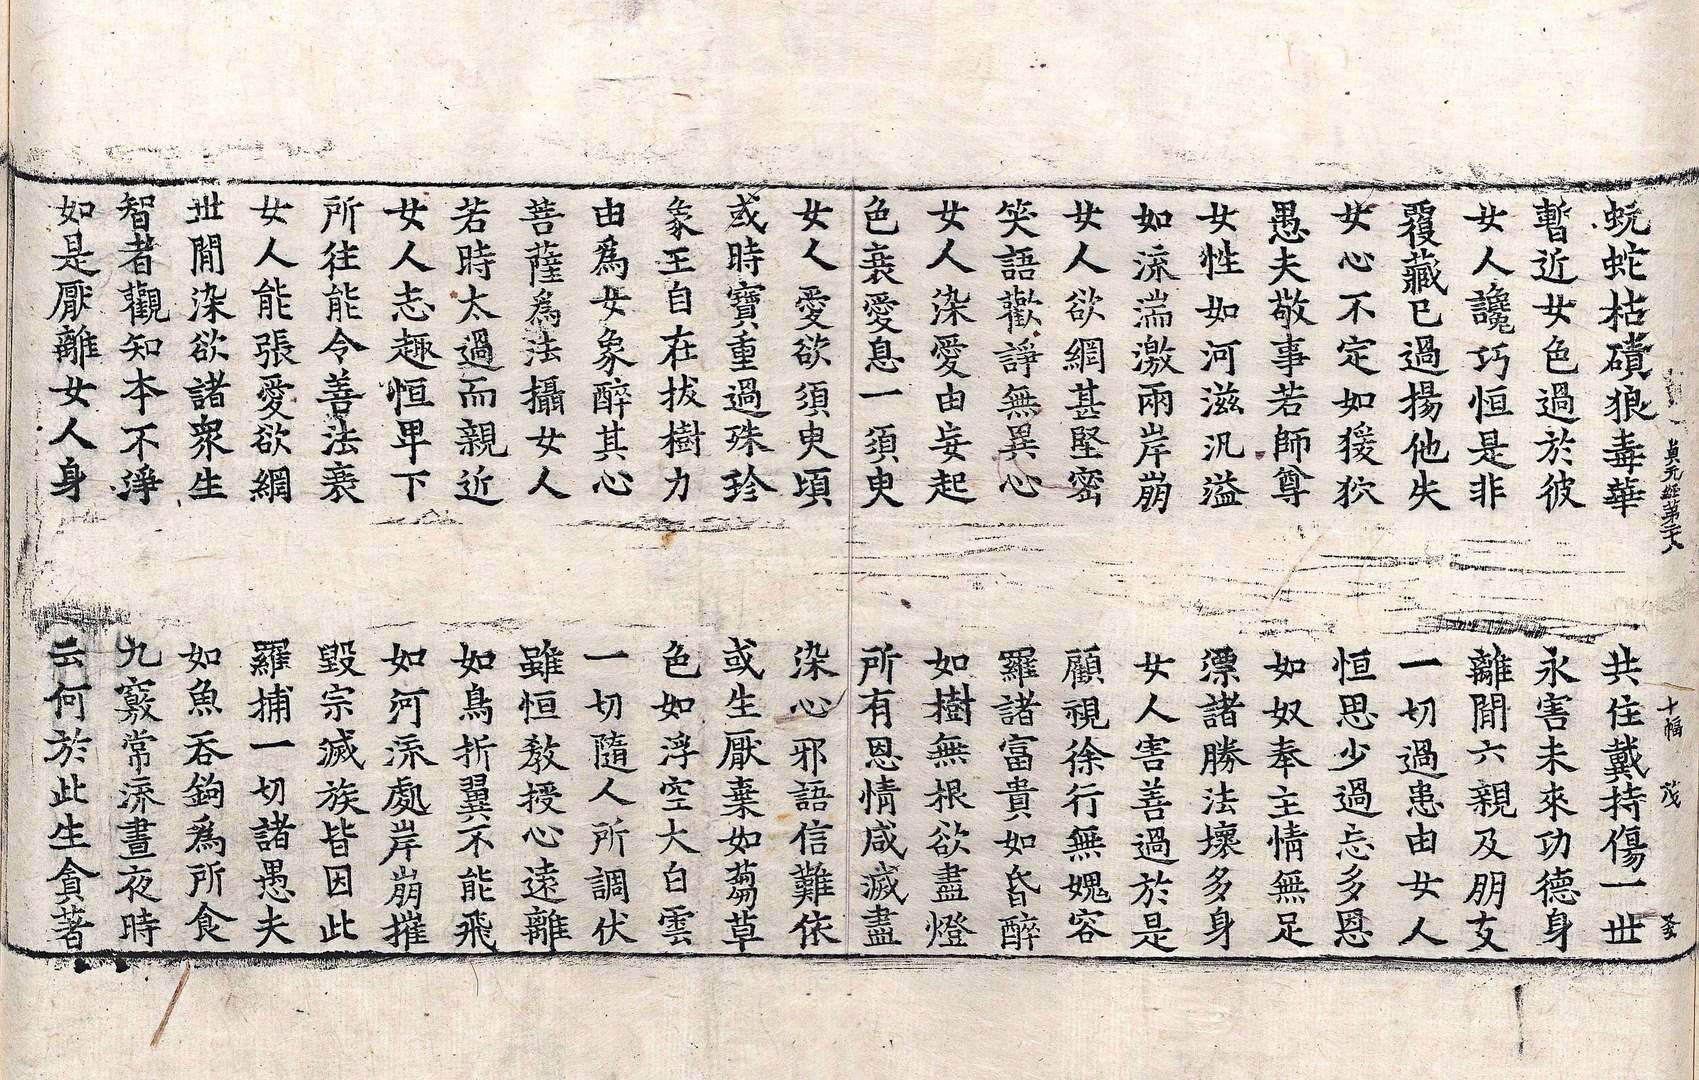 貞元經第二十八 十幅 茂
蚖蛇枯磧狼毒華 共住戴持傷一世
暫近女色過於彼 永害未來功德身
女人讒巧恒是非 離間六親及朋友
覆藏已過揚他失 一切過患由女人
女心不定如猨狖 恒思少過忘多恩
愚夫敬事若師尊 如奴奉主情無足
女性如河滋汎溢 漂諸勝法壞多身
如流湍激兩岸崩 女人害善過於是
女人欲網甚堅密 顧視徐行無媿容
笑語歡諍無異心 羅諸富貴如昏醉
女人染愛由妄起 如樹無根欲盡燈
色衰愛息一須臾 所有恩情咸滅盡
女人愛欲須臾頃 染心邪語信難依
或時寶重過珠珍 或生厭棄如蒭草
象王自在拔樹力 色如浮空大白雲
由爲女象醉其心 一切隨人所調伏
菩薩爲法攝女人 雖恒教授心遠離
若時太過而親近 如鳥折翼不能飛
女人志趣恒卑下 如河流處岸崩摧
所往能令善法衰 毀宗滅族皆因此
女人能張愛欲網 羅捕一切諸愚夫
世間染欲諸衆生 如魚吞鉤爲所食
智者觀知本不淨 九竅常流晝夜時
如是厭離女人身 云何於此生貪著